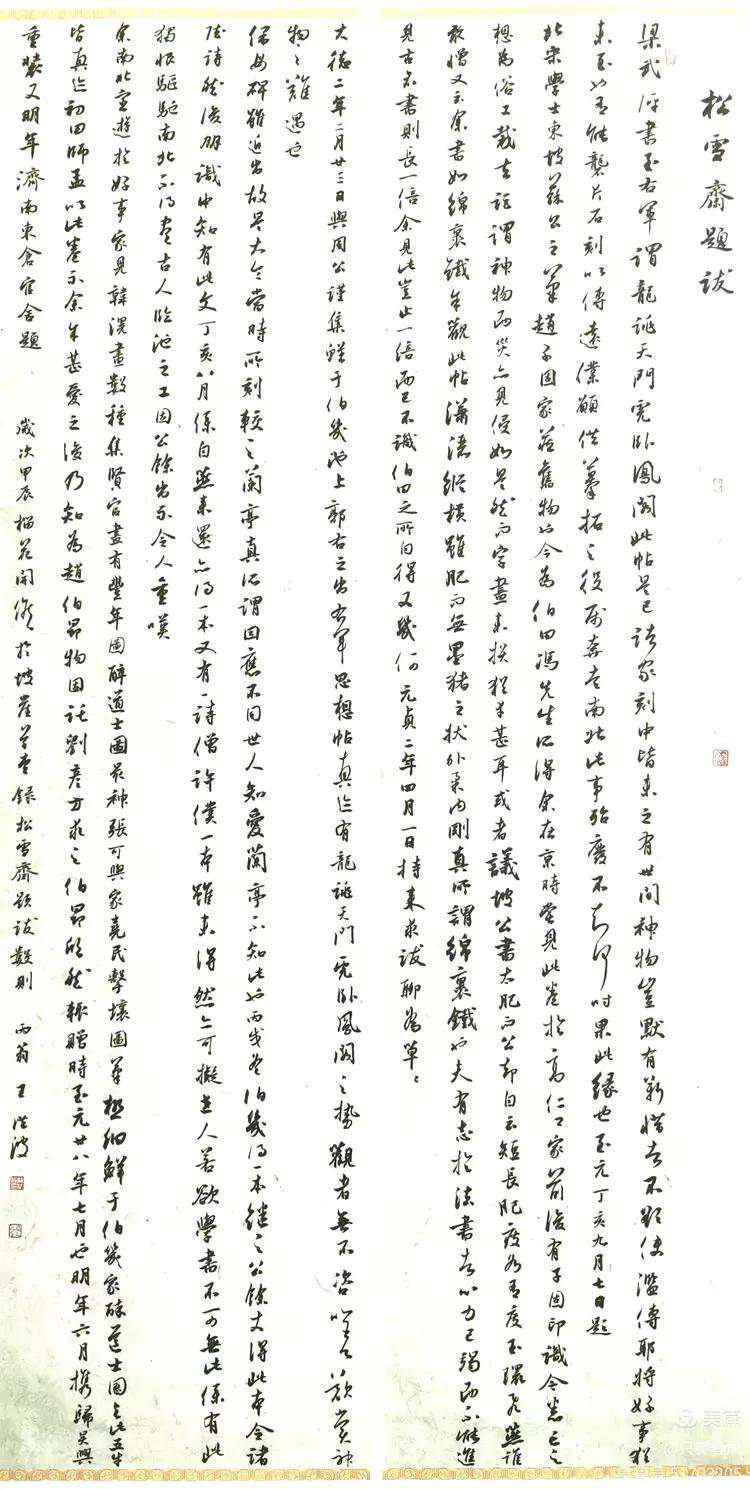 松雪齋題跋
梁武評書至右軍謂龍跳天門虎卧鳳閣此帖是已諸家刻中皆未之有世間神物豈默有靳惜者不欲使滥傳耶将好事猶
未至也有能襲片石刻以傳遠僕願供摹拓之役屬奔走南北此事殆廢不知何時果此緣也至元丁亥九月七日題
北宋學士東坡蘇公之筆趙子固家藏舊物也今為伯田馮先生所得余在京時嘗見此卷於高仁卿家前後有子固印識今悉亡之
想為俗工裁去所謂神物而灾亦見侵如是然而字畫未損猶幸甚耳或者議坡公書太肥而公却自云短長肥瘦各有度玉環飛燕誰
敢憎又云余書如綿裹鐵余觀此帖潇洒縱横雖肥而無墨猪之狀外柔内剛真所謂綿裹鐵也夫有志於法書者心力已竭而不能進
見古名書則長一倍余見此豈止一倍而已不識伯田之所自得又幾何元貞二年四月一日持来求跋聊為草草
大德二年二月廿三日與周公謹集鮮于伯幾池上郭右之出右軍思想帖真迹有龍跳天門虎卧鳳閣之勢觀者無不咨嗟歎賞神
物之難遇也
保母碑雖近出故是大令當時所刻較之蘭亭真所謂因應不同世人知愛蘭亭不知此也丙戌冬伯幾得一本繼之公餘丈得此本令諸
住詩然後朋識中知有此文丁亥八月僕自燕来還亦得一本又有一詩僧許僕一本雖未得然亦可擬世人若欲學書不可無此僕有此
獨恨驅馳南北不得盡古人臨池之工因公餘出示令人重嘆
余南北宦遊於好事家見韓滉畫數種集賢官畫有豐年圖醉道士圖最神張可與家堯民擊壤圖筆極細鮮于伯幾家醉道士圖與此五牛
皆真迹初田師孟以此卷示余余甚愛之後乃知為趙伯昂物因託劉彦方求之伯昂欣然輟贈時至元廿八年七月也明年六月携歸吴興
重装又明年濟南東倉官舍題 歲次甲辰榴花開候於坡崖草堂錄松雪齋題跋數則 西翁王洪波
美篇